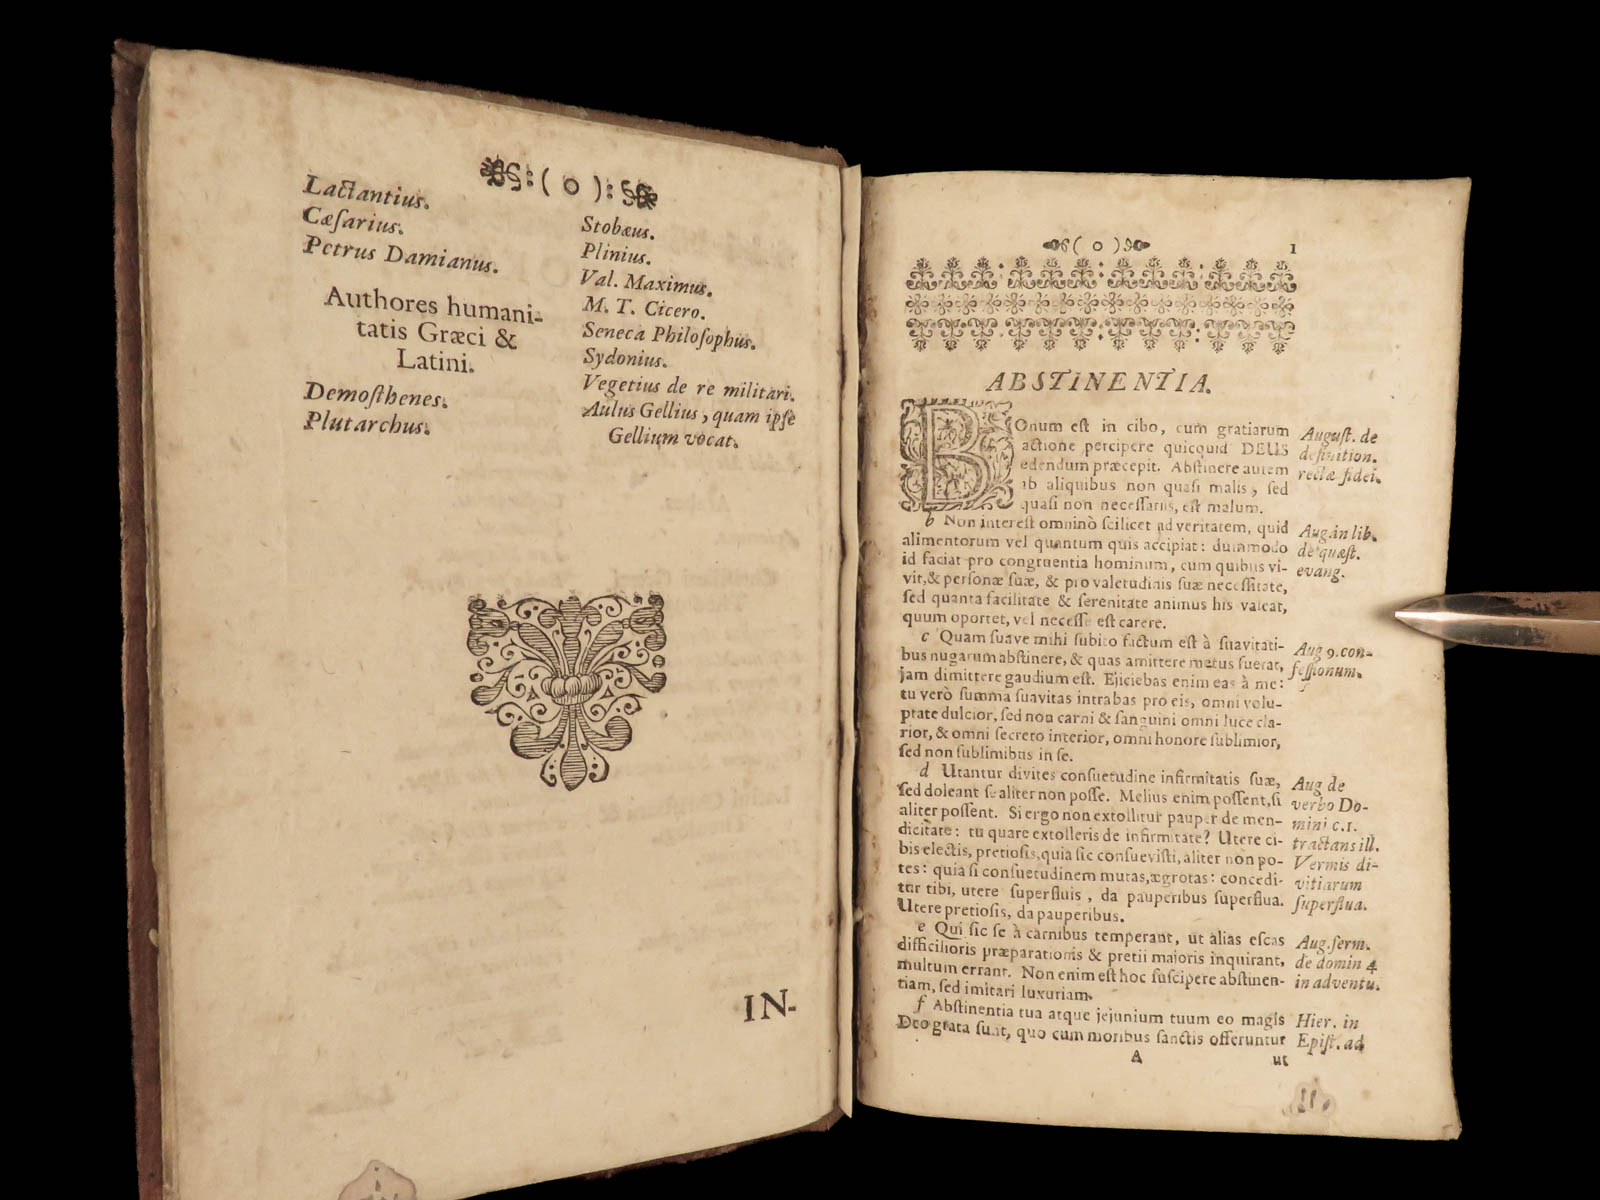 ( o )
Lactantius.
Cæſarius.
Petrus Damianus.
Authores humani-
tatis Græci &
Latini.
Demoſthenes.
Plutarchus.
Stobæus.
Plinius.
Val. Maximus.
M. T. Cicero.
Seneca Philoſophus.
Sydonius.
Vegetius de re militari.
Aulus Gellius, quam ipſe
Gellium vocat.
IN-
( o ) 1
ABSTINENTIA.
BOnum eſt in cibo, cum gratiarum
actione percipere quicquid DEUS
edendum præcepit. Abſtinere autem
ab aliquibus non quaſi malis, ſed
quaſi non neceſſariis, eſt malum.
b Non intereſt omninò ſcilicet ad veritatem, quid
alimentorum vel quantum quis accipiat: dummodo
id faciat pro congruentia hominum, cum quibus vi-
vit, & perſonæ ſuæ, & pro valetudinis ſuæ neceſſitate,
ſed quanta facilitate & ſerenitate animus his valeat,
quum oportet, vel neceſſe eſt carere.
c Quam ſuave mihi ſubito factum eſt à ſuavitati-
bus nugarum abſtinere, & quas amittere metus fuerat,
jam dimittere gaudium eſt. Ejiciebas enim eas à me:
tu verò ſumma ſuavitas intrabas pro eis, omni volu-
ptate dulcior, ſed non carni & ſanguini omni luce cla-
rior, & omni ſecreto interior, omni honore ſublimior,
ſed non ſublimibus in ſe.
d Utantur divites conſuetudine infirmitatis ſuæ,
ſed doleant ſe aliter non poſſe. Melius enim poſſent, ſi
aliter poſſent. Si ergo non extollitur pauper de men-
dicitate: tu quare extolleris de infirmitate? Utere ci-
bis electis, pretioſis, quia ſic conſueviſti, aliter non po-
tes: quia ſi conſuetudinem mutas, ægrotas: concedi-
tur tibi, utere ſuperfluis, da pauperibus ſuperflua.
Utere pretioſis, da pauperibus.
e Qui ſic ſe à carnibus temperant, ut alias eſcas
difficilioris præparationis & pretii maioris inquirant,
multum errant. Non enim eſt hoc ſuſcipere abſtinen-
tiam, ſed imitari luxuriam.
f Abſtinentia tua atque jejunium tuum eo magis
Deo grata ſunt, quo cum moribus ſanctis offeruntur
A ut
Auguſt. de
definition.
rectæ fidei.
Aug. in lib.
de quæſt.
evang.
Aug 9. con-
feſſionum.
Aug de
verbo Do-
mini c.1.
tractans ill.
Vermis di-
vitiarum
ſuperflua.
Aug. ſerm.
de domin 4
in adventu.
Hier. in
Epiſt. ad